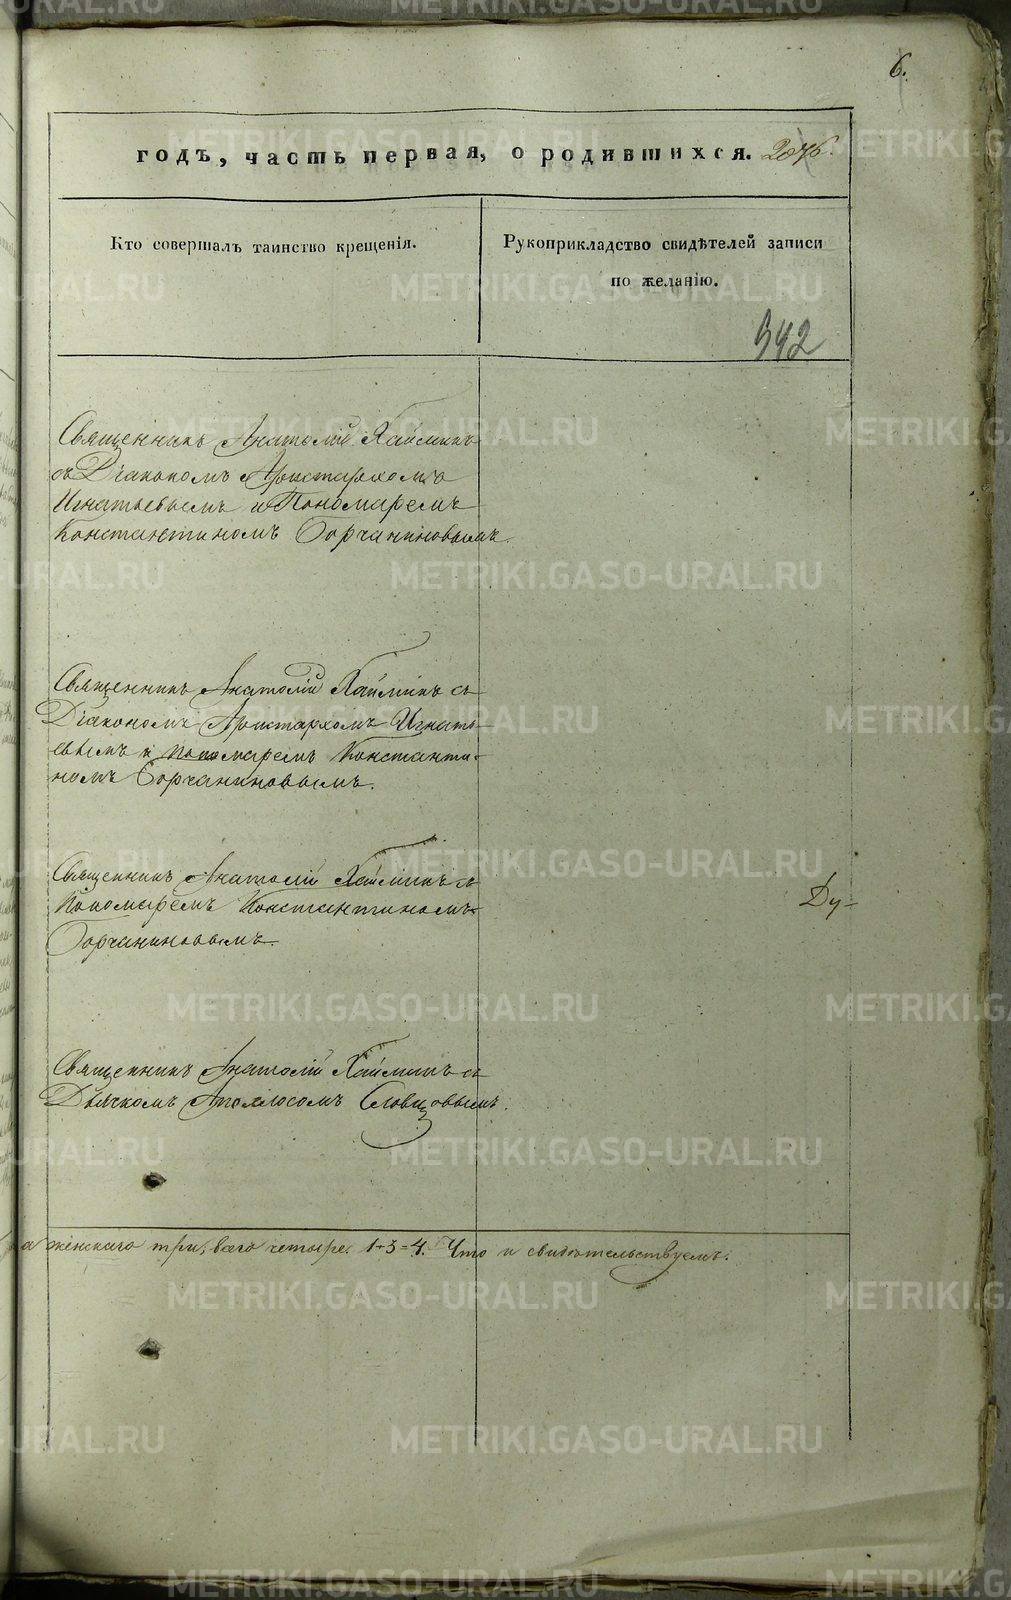 6.
годъ, часть первая, о родившихся.
Кто совершалъ таинство крещенія.
Рукоприкладство свидѣтелей записи
по желанію.
342
Священникъ Анатолій Хаймикъ
съ Діакономъ Аристархомъ
Игнатьевымъ и Пономаремъ
Константиномъ Борчаниновымъ.
Священникъ Анатолій Хаймикъ съ
Діакономъ Аристархомъ Игнать-
евымъ и пономаремъ Константи-
номъ Борчаниновымъ.
Священникъ Анатолій Хаймикъ съ
Пономаремъ Константиномъ
Борчаниновымъ.
Ду-
Священникъ Анатолій Хаймикъ съ
Дьячкомъ Аполлосомъ Словцовымъ.
а женскаго три, всего четыре. 1+3=4. Что и свидѣтельствуемъ.
METRIKI.GASO-URAL.RU